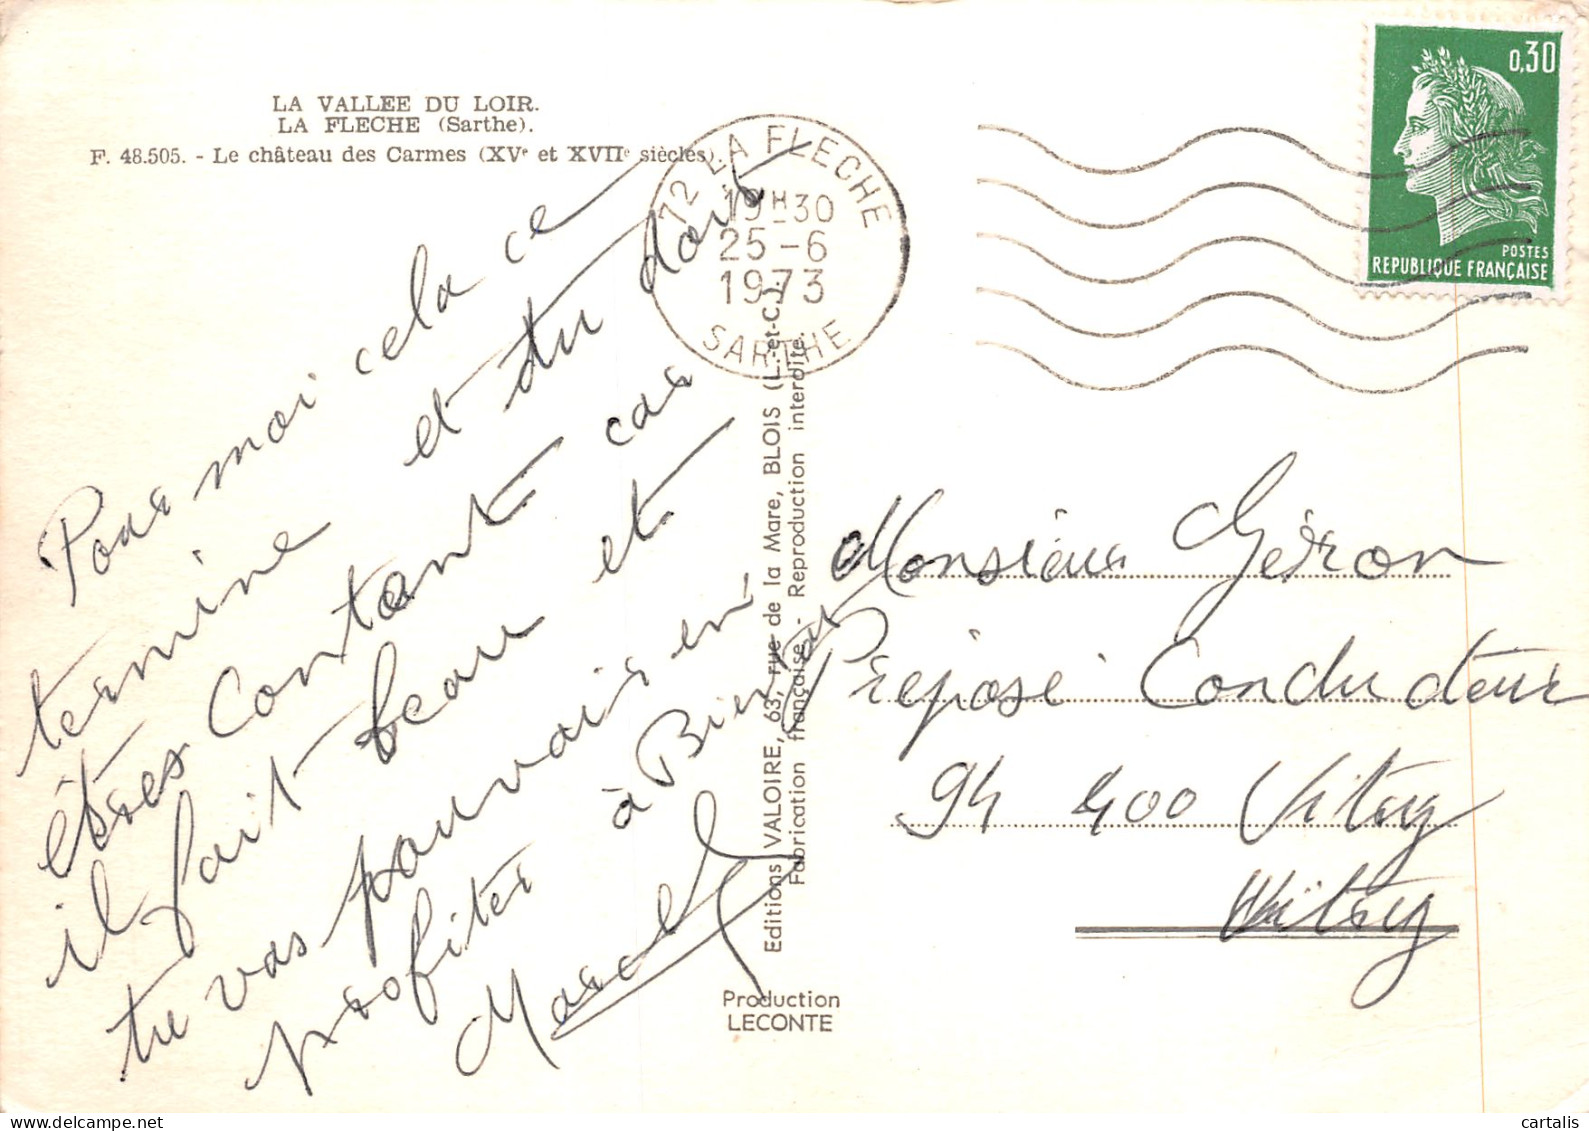 LA VALLEE DU LOIR.
LA FLECHE (Sarthe).
F. 48.505. - Le château des Carmes (XVe et XVIIe siècles).
72 LA FLECHE
19H30
25-6
1973
SARTHE
0,30
POSTES
REPUBLIQUE FRANÇAISE
Pour moi cela ce
termine et tu dois
êtres Contant car
il fait beau et
tu vas pouvoir en
profiter à Bientot
Marcel
Editions VALOIRE, 63, rue de la Mare, BLOIS (L.-et-C.).
Fabrication française - Reproduction interdite.
Production
LECONTE
Monsieur Géron
Préposé Conducteur
94 400 Vitry
Vitry
cartalis